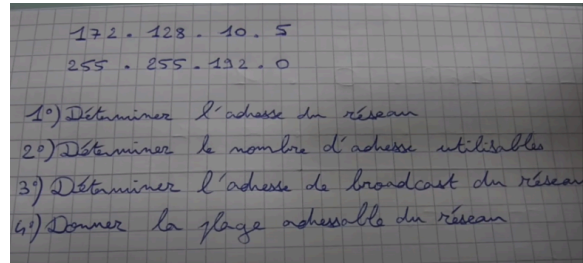 172.128.10.5
255.255.192.0
1°) Déterminer l'adresse du réseau
2°) Déterminer le nombre d'adresse utilisables
3°) Déterminer l'adresse de broadcast du réseau
4°) Donner la plage adressable du réseau